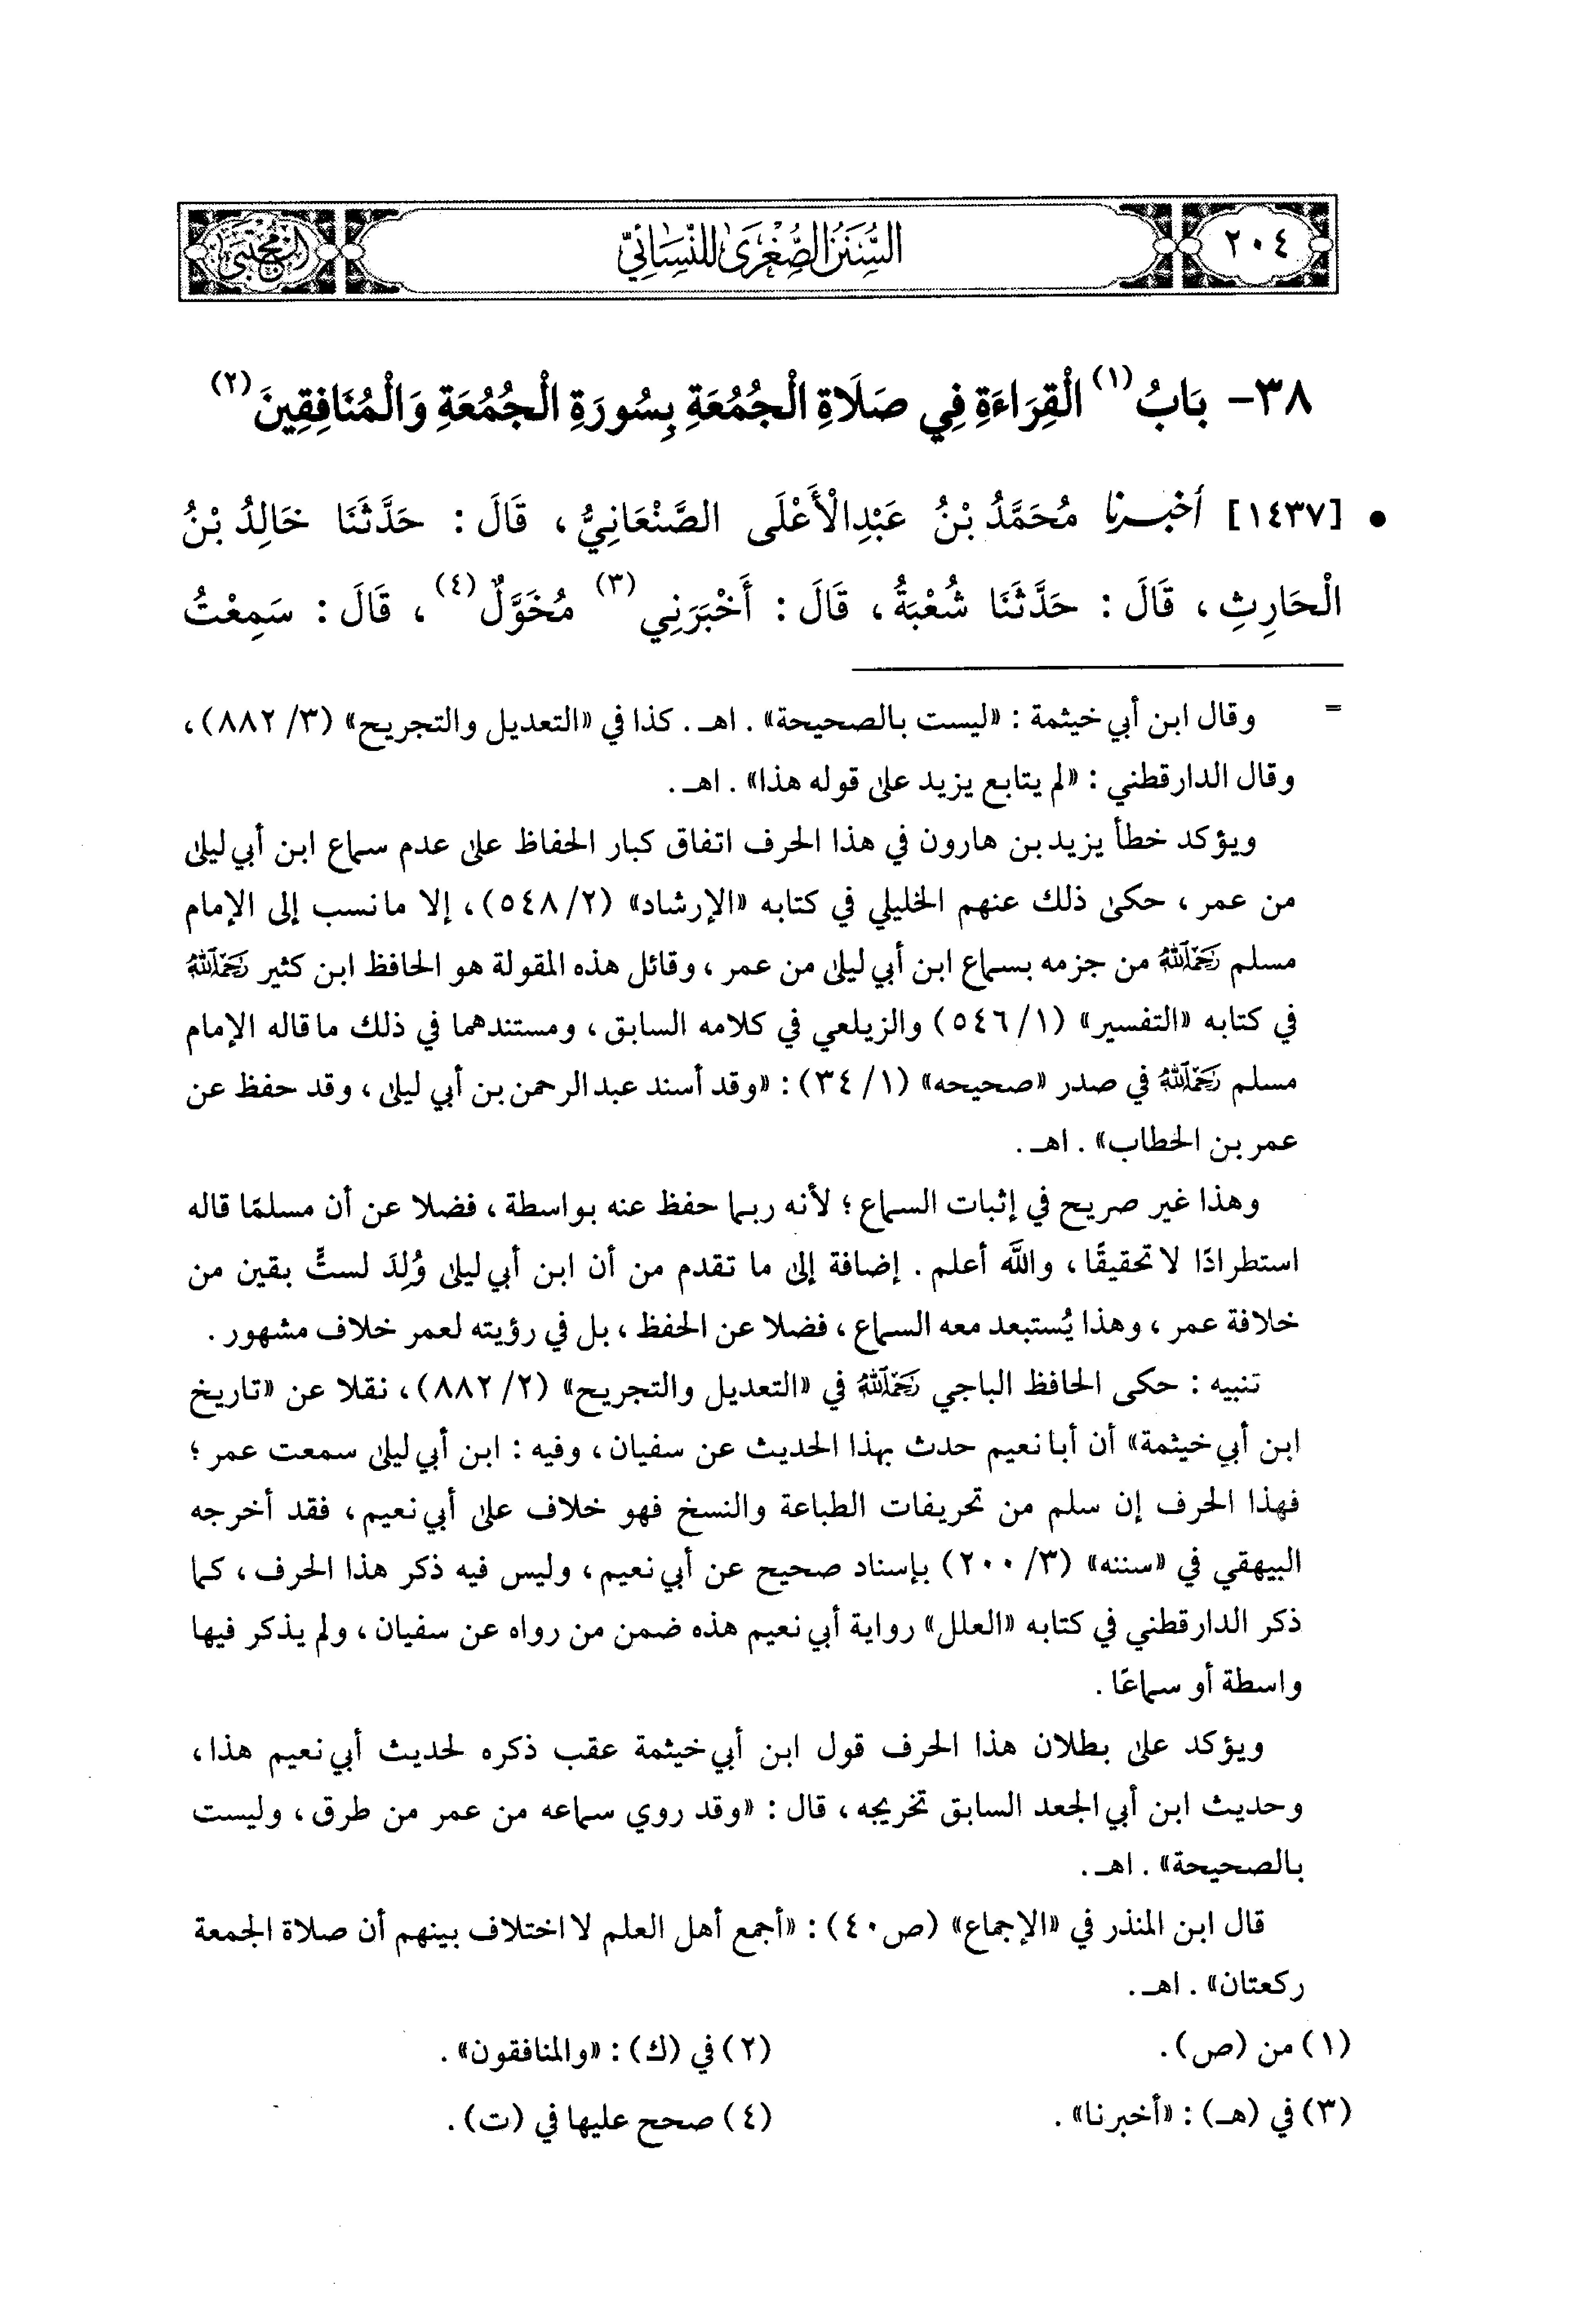 ٢٠٤
السُّنَنُ الصُّغْرَىٰ لِلنَّسَائِيِّ
المجتبى
٣٨- بَابُ (١) الْقِرَاءَةِ فِي صَلَاةِ الْجُمُعَةِ بِسُورَةِ الْجُمُعَةِ وَالْمُنَافِقِينَ (٢)
• [١٤٣٧] أخبرنا مُحَمَّدُ بْنُ عَبْدِالْأَعْلَى الصَّنْعَانِيُّ، قَالَ: حَدَّثَنَا خَالِدُ بْنُ
الْحَارِثِ، قَالَ: حَدَّثَنَا شُعْبَةُ، قَالَ: أَخْبَرَنِي (٣) مُخَوَّلٌ (٤)، قَالَ: سَمِعْتُ
= وقال ابن أبي خيثمة: «ليست بالصحيحة». اهـ. كذا في «التعديل والتجريح» (٣/ ٨٨٢)،
وقال الدارقطني: «لم يتابع يزيد على قوله هذا». اهـ.
ويؤكد خطأ يزيد بن هارون في هذا الحرف اتفاق كبار الحفاظ على عدم سماع ابن أبي ليلى
من عمر، حكى ذلك عنهم الخليلي في كتابه «الإرشاد» (٢/ ٥٤٨)، إلا ما نسب إلى الإمام
مسلم رَحِمَهُ اللَّهُ من جزمه بسماع ابن أبي ليلى من عمر، وقائل هذه المقولة هو الحافظ ابن كثير رَحِمَهُ اللَّهُ
في كتابه «التفسير» (١/ ٥٤٦) والزيلعي في كلامه السابق، ومستندهما في ذلك ما قاله الإمام
مسلم رَحِمَهُ اللَّهُ في صدر «صحيحه» (١/ ٣٤): «وقد أسند عبدالرحمن بن أبي ليلى، وقد حفظ عن
عمر بن الخطاب». اهـ.
وهذا غير صريح في إثبات السماع؛ لأنه ربما حفظ عنه بواسطة، فضلا عن أن مسلمًا قاله
استطرادًا لا تحقيقًا، واللَّه أعلم. إضافة إلى ما تقدم من أن ابن أبي ليلى وُلِدَ لستٍّ بقين من
خلافة عمر، وهذا يُستبعد معه السماع، فضلا عن الحفظ، بل في رؤيته لعمر خلاف مشهور.
تنبيه: حكى الحافظ الباجي رَحِمَهُ اللَّهُ في «التعديل والتجريح» (٢/ ٨٨٢)، نقلا عن «تاريخ
ابن أبي خيثمة» أن أبا نعيم حدث بهذا الحديث عن سفيان، وفيه: ابن أبي ليلى سمعت عمر؛
فهذا الحرف إن سلم من تحريفات الطباعة والنسخ فهو خلاف على أبي نعيم، فقد أخرجه
البيهقي في «سننه» (٣/ ٢٠٠) بإسناد صحيح عن أبي نعيم، وليس فيه ذكر هذا الحرف، كما
ذكر الدارقطني في كتابه «العلل» رواية أبي نعيم هذه ضمن من رواه عن سفيان، ولم يذكر فيها
واسطة أو سماعًا.
ويؤكد على بطلان هذا الحرف قول ابن أبي خيثمة عقب ذكره لحديث أبي نعيم هذا،
وحديث ابن أبي الجعد السابق تخريجه، قال: «وقد روي سماعه من عمر من طرق، وليست
بالصحيحة». اهـ.
قال ابن المنذر في «الإجماع» (ص٤٠): «أجمع أهل العلم لا اختلاف بينهم أن صلاة الجمعة
ركعتان». اهـ.
(١) من (ص). (٢) في (ك): «والمنافقون».
(٣) في (هـ): «أخبرنا». (٤) صحح عليها في (ت).